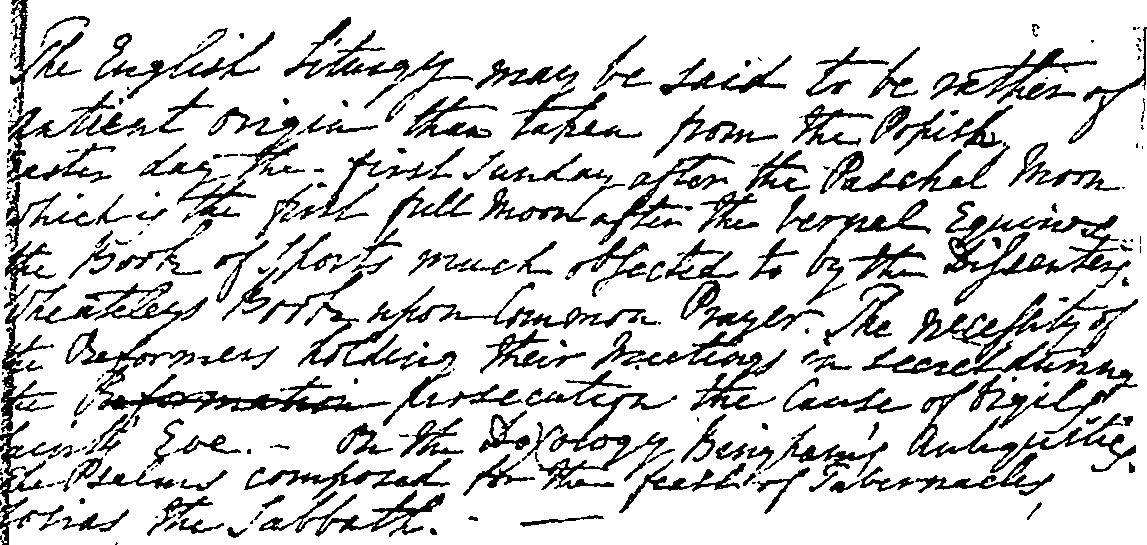 The English Liturgy may be said to be rather of
antient origin than taken from the Popish
easter day the first Sunday after the Paschal Moon
which is the first full Moon after the vernal Equinox
the Book of Sports much objected to by the Dissenters.
Wheatleys Book upon Common Prayer. The necessity of
the Reformers holding their Meetings in secret during
the Reformation prosecution the Cause of Vigils
Saints Eve. - On the Doxology Bingham's Antiquities.
the Psalms composed for the feast of Tabernacles,
the Sabbath. -